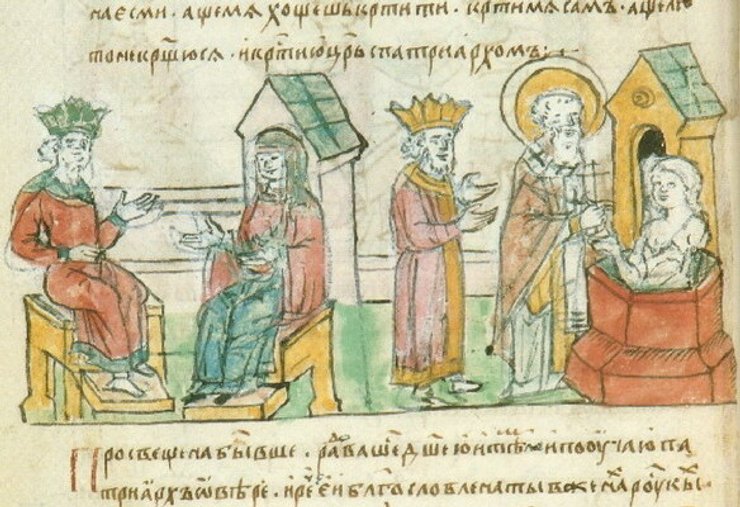 паесми · ащемѧ хощешь кртити · кртимѧ самъ · ащели
то не крщюсѧ · и крти юцрь спатриархомъ:
Просвещена бывше · радоваше дш҃ею и тѣлом и поучаюпа
триархъ ѿ вѣре · и рече еи благословлена ты вженахъ роускы